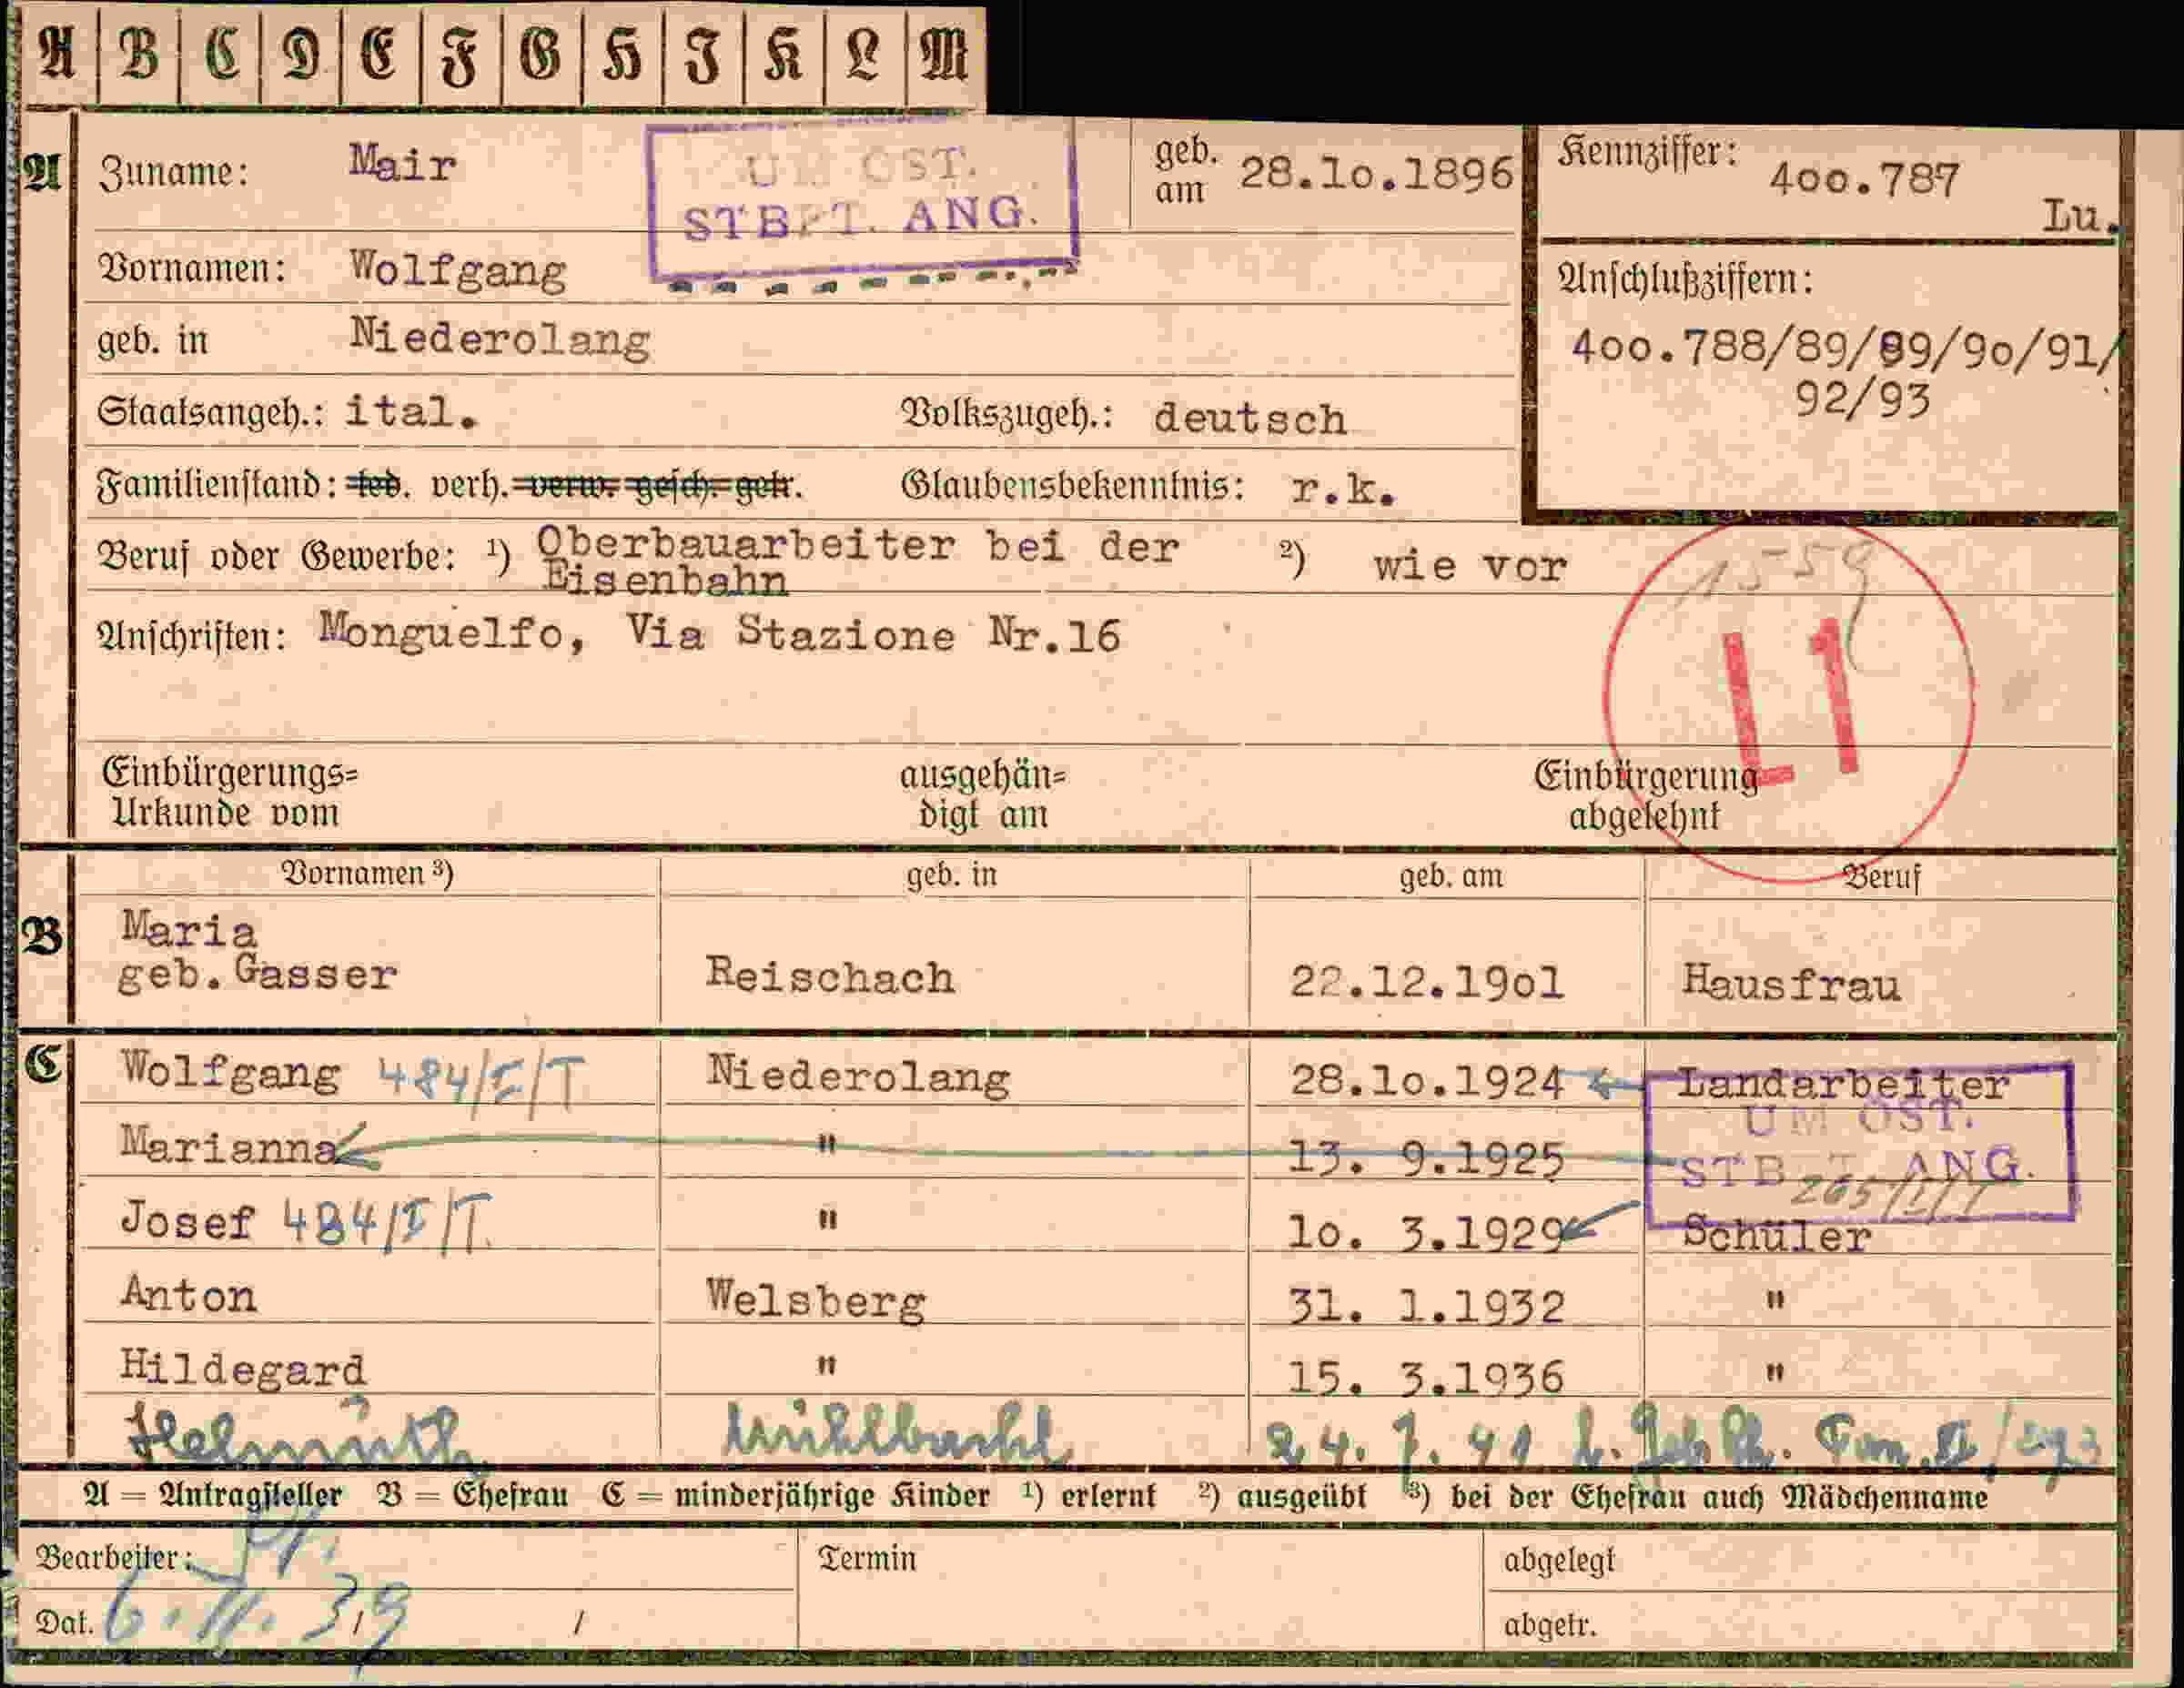 A B C D E F G H I K L M
A Zuname: Mair geb. am 28.10.1896 Kennziffer: 400.787 Lu.
UM OST.
STBET. ANG.
Vornamen: Wolfgang
Anschlußziffern:
geb. in Niederolang
400.788/89/89/90/91/
92/93
Staatsangeh.: ital. Volkszugeh.: deutsch
Familienstand: led. verh. verw. gesch. getr. Glaubensbekenntnis: r.k.
Beruf oder Gewerbe: ¹) Oberbauarbeiter bei der Eisenbahn ²) wie vor
1559
L1
Anschriften: Monguelfo, Via Stazione Nr.16
Einbürgerungs= ausgehän= Einbürgerung
Urkunde vom digt am abgelehnt
Vornamen ³) geb. in geb. am Beruf
B Maria
geb. Gasser Reischach 22.12.1901 Hausfrau
C Wolfgang 484/I/T Niederolang 28.10.1924 Landarbeiter
UM OST.
Marianna " 13. 9.1925
STBET. ANG.
265/I/T
Josef 484/I/T. " 10. 3.1929 Schüler
Anton Welsberg 31. 1.1932 "
Hildegard " 15. 3.1936 "
Helmuth Mühlbachl 24. 7. 41
A = Antragsteller B = Ehefrau C = minderjährige Kinder ¹) erlernt ²) ausgeübt ³) bei der Ehefrau auch Mädchenname
Bearbeiter: Termin abgelegt
Dat. 6. 11. 39 / abgetr.